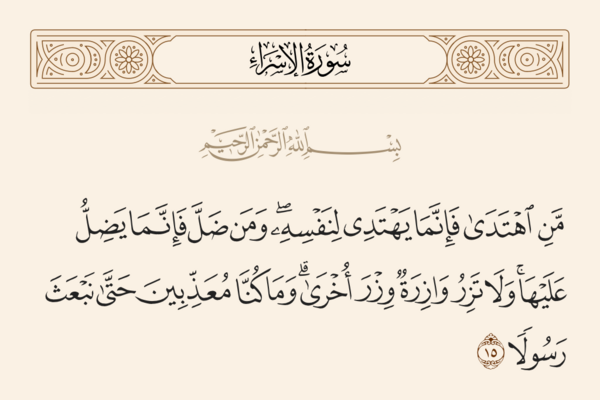 سُورَةُ الإِسْرَاءِ
بِسْمِ ٱللَّهِ ٱلرَّحْمَٰنِ ٱلرَّحِيمِ
مَّنِ ٱهْتَدَىٰ فَإِنَّمَا يَهْتَدِى لِنَفْسِهِۦ ۖ وَمَن ضَلَّ فَإِنَّمَا يَضِلُّ
عَلَيْهَا ۚ وَلَا تَزِرُ وَازِرَةٌ وِزْرَ أُخْرَىٰ ۗ وَمَا كُنَّا مُعَذِّبِينَ حَتَّىٰ نَبْعَثَ
رَسُولًا ١٥